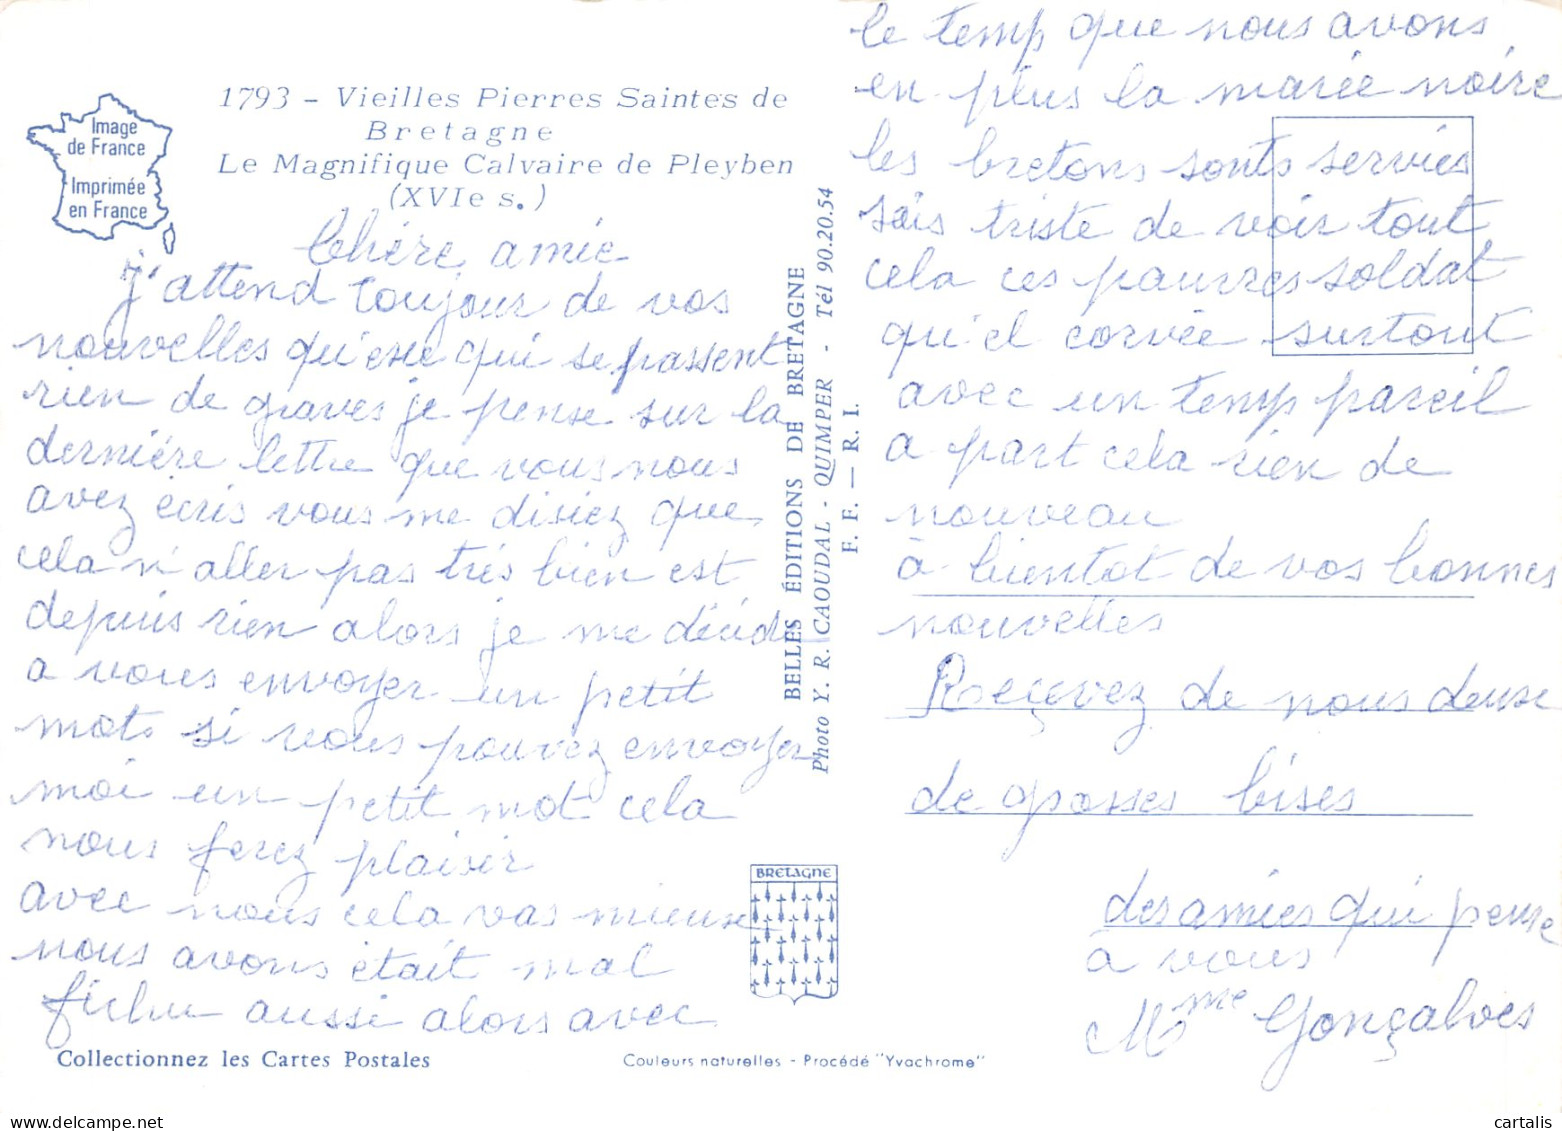 Image
de France
Imprimée
en France
1793 - Vieilles Pierres Saintes de
Bretagne
Le Magnifique Calvaire de Pleyben
(XVIe s.)
Chére amie
j'attend toujour de vos
nouvelles qu'esse qui se passent
rien de graves je pense sur la
derniére lettre que vous nous
avez écris vous me disiez que
cela n'aller pas trés bien est
depuis rien alors je me décide
a vous envoyer un petit
mots si vous pouvez envoyer
moi un petit mot cela
nous ferez plaisir
avec nous cela vas mieuse
nous avons était mal
fichu aussi alors avec
Collectionnez les Cartes Postales
BELLES ÉDITIONS DE BRETAGNE
Photo Y. R. CAOUDAL - QUIMPER - Tél 90.20.54
F. F. — R. I.
BRETAGNE
Couleurs naturelles - Procédé "Yvachrome"
le temp que nous avons
en plus la marée noire
les bretons sonts serviés
sais triste de voir tout
cela ces pauvres soldat
qu'el corvée surtout
avec un temp pareil
a part cela rien de
nouveau
à bientot de vos bonnes
nouvelles
Reçevez de nous deuse
de grosses bises
des amies qui pense
à vous
Mme Gonçalves
cartalis
www.delcampe.net